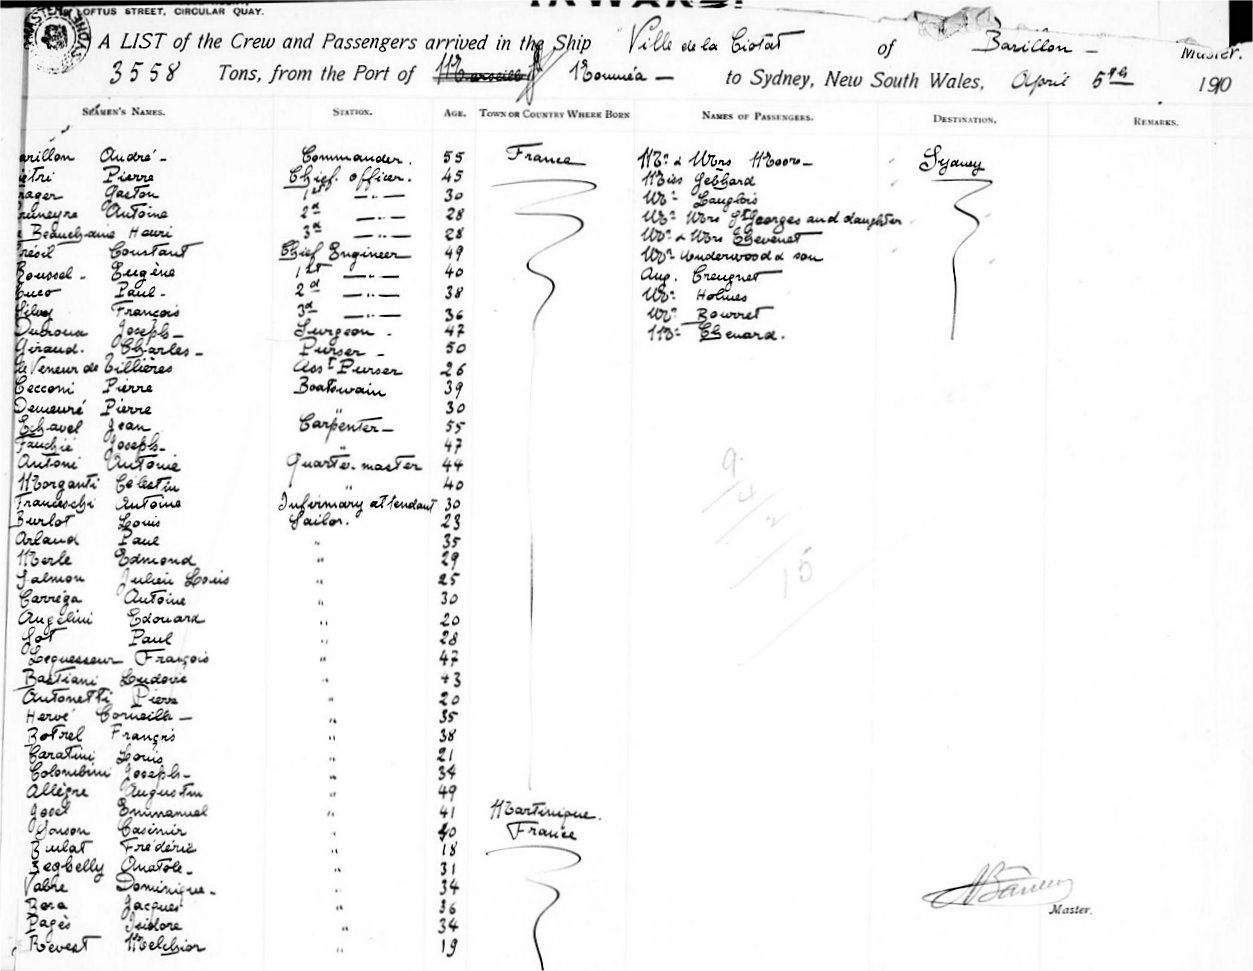 LOFTUS STREET, CIRCULAR QUAY.
A LIST of the Crew and Passengers arrived in the Ship Ville de la Ciotat of Barillon - Master.
3558 Tons, from the Port of Marseille Nouméa - to Sydney, New South Wales, April 5th 1910
SEAMEN'S NAMES. STATION. AGE. TOWN OR COUNTRY WHERE BORN NAMES OF PASSENGERS. DESTINATION. REMARKS.
arillon André - Commander. 55 France Mr & Mrs Moore - Sydney
etri Pierre Chief officer. 45 Miss Gebhard
Gaston 1st —"— 30 Mr Langlois
Antoine 2d —"— 28 Mr Mrs St Georges and daughter
Beauchaine Henri 3d —"— 28 Mr & Mrs Chevenet
résil Constant Chief Engineer 49 Mr Underwood & son
Roussel - Eugène 1st —"— 40 Aug. Creugnet
Cuco Paul - 2d —"— 38 Mr Holmes
François 3d —"— 36 Mr Bourret
Dubroua Joseph - Surgeon - 47 Mr Chenard.
Giraud. Charles - Purser - 50
Le Veneur de Tillières Asst Purser 26
Cecconi Pierre Boatswain 39
Demeuré Pierre " 30
Echavel Jean Carpenter - 55
Fauchié Joseph - " 47
Antoni Antoine Quarter-master 44
Morganti Célestin " 40
Franceschi Antoine Infirmary attendant 30
Burlot Louis Sailor. 23
Arlaud Paul " 35
Merle Edmond " 29
Salmon Julien Louis " 25
Carréga Antoine " 30
Angelini Edouard " 20
Sot Paul " 28
Lequesseur François " 47
Bastiani Ludovic " 43
Antonetti Pierre " 20
Hervé Corneille - " 35
Botrel François " 38
Caratini Louis " 21
Colombini Joseph - " 34
Allègre Augustin " 49
Josel Emmanuel " 41 Martinique.
Casimir " 40 France
Bulat Frédéric " 18
Segbelly Anatole - " 31
Vabre Dominique - " 34
Rosa Jacques " 36
Pagès Isidore " 34
Revest Melchior " 19
Master.